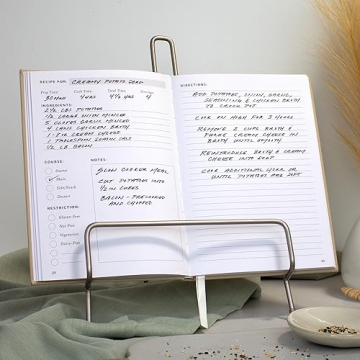 RECIPE FOR: CREAMY POTATO SOUP
Prep Time Cook Time Total Time Servings
30 MINS 4 HRS 4 1/2 HRS 4
INGREDIENTS:
2 1/2 LBS POTATOES
1/2 LARGE ONION MINCED
5 CLOVES GARLIC MINCED
4 CANS CHICKEN BROTH
1/2 LB BACON
COURSE:
Main
Side/Snack
Dessert
RESTRICTION:
Gluten-Free
Nut-Free
Vegetarian
Dairy-Free
NOTES:
SLOW COOKER MEAL
CUT POTATOES INTO
1/2 IN CUBES
BACON - PRECOOKED
AND CHOPPED
DIRECTIONS:
ADD POTATOES, ONION, GARLIC,
SEASONING & CHICKEN BROTH
TO CROCK POT
COOK ON HIGH FOR 3 HOURS
REMOVE 2 CUPS BROTH &
CREAM CHEESE IN BROTH
UNTIL SMOOTH
REINTRODUCE BROTH & CREAMY
CHEESE INTO POT
COOK ADDITIONAL HOUR OR
UNTIL POTATOES ARE SOFT